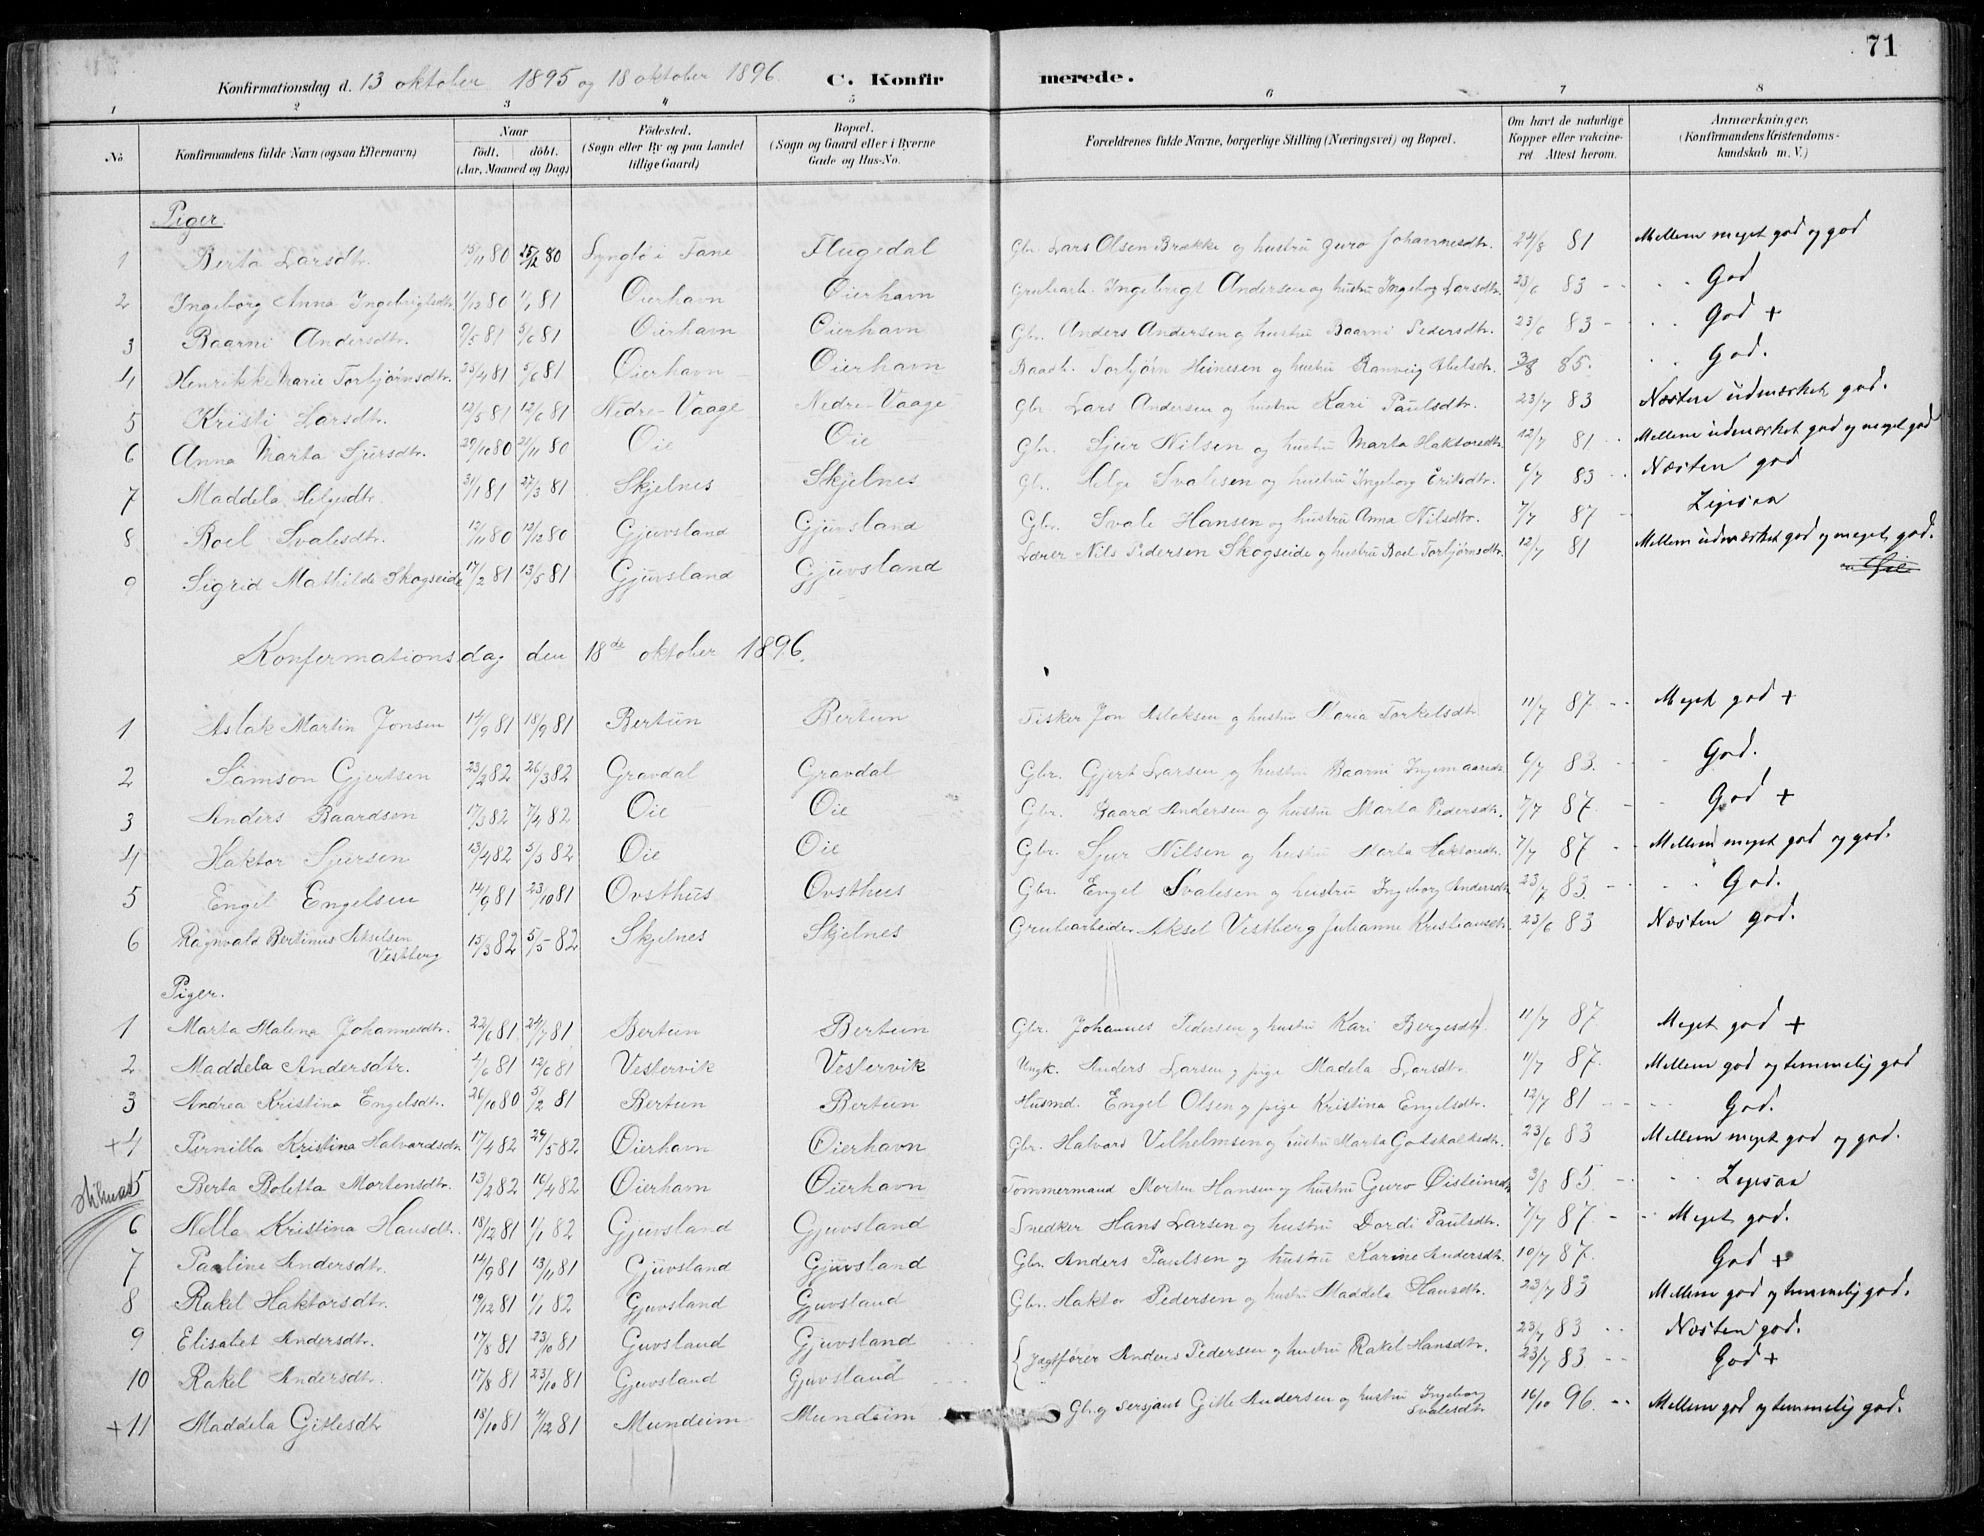 71
Konfirmationsdag d. 13 oktober 1895 og 18 oktober 1896. C. Konfir merede.
1 2 3 4 5 6 7 8
No Konfirmandens fulde Navn (ogsaa Efternavn) Naar födt. döbt. (Aar, Maaned og Dag) Födested. (Sogn eller By og paa Landet tillige Gaard) Bopæl. (Sogn og Gaard eller i Byerne Gade og Hus-No. Forældrenes fulde Navne, borgerlige Stilling (Næringsvei) og Bopæl. Om havt de naturlige Kopper eller vakcineret Attest herom. Anmærkninger. (Konfirmandens Kristendomskundskab m. V.)
Piger.
1 Berta Larsdtr. 15/11 80 25/12 80 Lyngbö i Fane Flugedal Gbr. Lars Olsen Brække og hustru Guro Johannesdtr. 24/8 81 Mellem meget god og god
2 Ingeborg Anna Ingebrigtsdtr. 1/12 80 1/1 81 Oierhavn Oierhavn Grubearb. Ingebrigt Andersen og hustru Ingeborg Larsdtr. 23/6 83 God
3 Baarni Andersdtr. 2/5 81 5/6 81 Oierhavn Oierhavn Gbr. Anders Andersen og hustru Baarni Pedersdtr. 23/6 83 God +
4 Henrikke Marie Torbjørnsdtr. 25/4 81 5/6 81 Oierhavn Oierhavn Torbjörn Heinesen og hustru Ranveig Abelsdtr. 3/8 85. God.
5 Kristi Larsdtr. 12/5 81 12/6 81 Nedre-Vaage Nedre-Vaage Gbr. Lars Andersen og hustru Kari Paulsdtr. 23/7 83 Næsten udmærket god.
6 Anna Marta Sjursdtr. 29/10 80 21/11 80 Oie Oie Gbr. Sjur Nilsen og hustru Marta Haktorsdtr. 12/7 81 Mellem udmærket god og meget god
7 Maddela Helgesdtr. 31/1 81 27/3 81 Skjelnes Skjelnes Gbr. Helge Svalesen og hustru Ingeborg Eriksdtr. 6/7 83 Næsten god
8 Roel Svalesdtr. 12/11 80 12/12 80 Gjuvsland Gjuvsland Gbr. Svale Hansen og hustru Anna Nilsdtr. 7/7 87 Ligesaa
9 Sigrid Mathilde Skogseide 17/2 81 13/5 81 Gjuvsland Gjuvsland Lærer Nils Pedersen Skogseide og hustru Boel Torbjørnsdtr. 12/7 81 Mellem udmærket god og meget god.
Konfermationsdag den 18de oktober 1896.
1 Aslak Martin Jonsen 14/9 81 18/9 81 Bertun Bertun Fisker Jon Aslaksen og hustru Maria Torkelsdtr. 11/7 87 Meget god +
2 Samson Gjertsen 23/2 82 26/3 82 Gravdal Gravdal Gbr. Gjert Larsen og hustru Baarni Ingemaarsdtr. 6/7 83. God.
3 Anders Baardsen 17/3 82 7/4 82 Oie Oie Gbr. Baard Andersen og hustru Marta Pedersdtr. 7/7 87 God +
4 Haktor Sjursen 13/4 82 5/5 82 Oie Oie Gbr. Sjur Nilsen og hustru Marta Haktorsdtr. 7/7 87 Mellem meget god og god.
5 Engel Engelsen 14/9 81 23/10 81 Ovsthus Ovsthus Gbr. Engel Svalesen og hustru Ingeborg Andersdtr. 23/7 83. God.
6 Ragnvald Bertinus Akselsen Vestberg 15/3 82 5/5 82 Skjelnes Skjelnes Grubearbeider Aksel Vestberg Julianne Kristiansdtr. 23/6 83 Næsten god.
Piger.
1 Marta Malena Johannesdtr. 22/6 81 24/7 81 Bertun Bertun Gbr. Johannes Pedersen og hustru Kari Bergesdtr. 11/7 87. Meget god +
2 Maddela Andersdtr. 4/6 81 12/6 81 Vestervik Vestervik Ungk. Anders Larsen og pige Madela Larsdtr. 11/7 87. Mellem god og temmelig god
3 Andrea Kristina Engelsdtr. 26/10 80 5/2 81 Bertun Bertun Husmd. Engel Olsen og pige Kristina Engelsdtr. 12/7 81 God.
+4 Pernilla Kristina Halvardsdtr. 17/4 82 29/5 82 Oierhavn Oierhavn Gbr. Halvard Vilhelmsen og hustru Marta Gotskalksdtr. 23/6 83 Mellem meget god og god.
5 Berta Boletta Mortensdtr. 13/2 82 16/4 82 Oierhavn Oierhavn Tømmermand Morten Hansen og hustru Guro Øisteinsdtr. 3/8 85. Ligesaa
6 Nella Kristina Hansdtr. 18/12 81 1/1 82 Gjuvsland Gjuvsland Snedker Hans Larsen og hustru Dordi Paulsdtr. 7/7 87. Meget god.
7 Pauline Andersdtr. 14/9 81 13/11 81 Gjuvsland Gjuvsland Gbr. Anders Paulsen og hustru Karine Andersdtr. 10/7 87. God +
8 Rakel Haktorsdtr. 19/12 81 1/1 82 Gjuvsland Gjuvsland Gbr. Haktor Pedersen og hustru Maddela Hansdtr. 23/7 83 Mellem god og temmelig god.
9 Elisabet Andersdtr. 17/8 81 23/10 81 Guvsland Gjuvsland 23/7 83 Næsten god.
10 Rakel Andersdtr. 17/8 81 23/10 81 Gjuvsland Gjuvsland Jægtfører Anders Pedersen og hustru Rakel Hansdtr. 23/7 83 God +
+11 Maddela Gitlesdtr 18/10 81 4/12 81 Mundeim Mundeim Gbr. og sersjant Gitle Andersen og hustru Ingeborg Svalesdtr. 16/10 96. Mellem god og temmelig god.